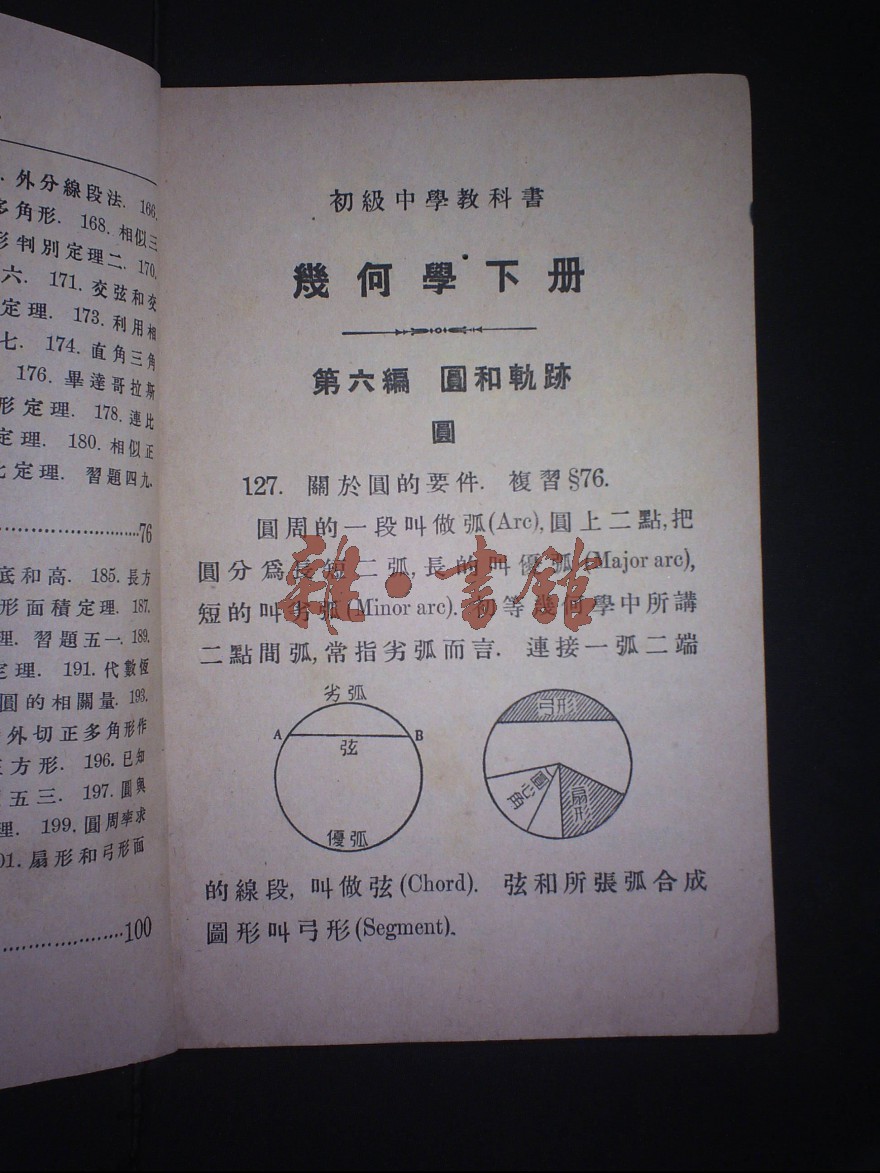 外分線段法. 166.
多角形. 168. 相似三
形判別定理二. 170.
六. 171. 交弦和交
定理. 173. 利用相
七. 174. 直角三角
176. 畢達哥拉斯
形定理. 178. 連比
定理. 180. 相似正
定理. 習題四九.
76
底和高. 185. 長方
形面積定理. 187.
理. 習題五一. 189.
定理. 191. 代數恆
圓的相關量. 193.
外切正多角形作
方形. 196. 已知
五三. 197. 圓與
理. 199. 圓周率求
01. 扇形和弓形面
100
初級中學教科書
幾何學下册
第六編 圓和軌跡
圓
127. 關於圓的要件. 複習§76.
圓周的一段叫做弧(Arc),圓上二點,把
圓分爲長短二弧,長的叫優弧(Major arc),
短的叫劣弧(Minor arc). 初等幾何學中所講
二點間弧,常指劣弧而言. 連接一弧二端
劣弧
A
B
弦
優弧
弓形
圓心角
扇形
的線段, 叫做弦(Chord). 弦和所張弧合成
圖形叫弓形(Segment).
雜·書館